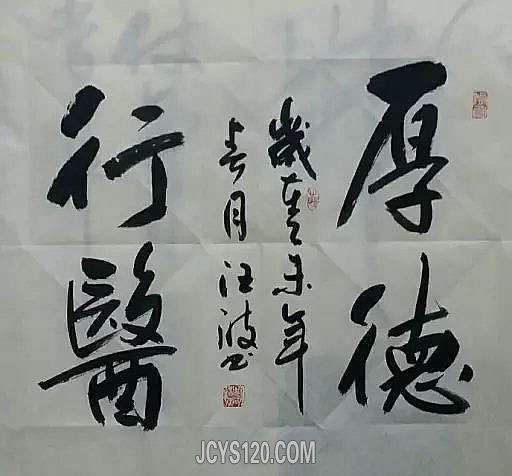 厚德
歲在乙未年
春月汪波书
行醫
JCYS120.COM